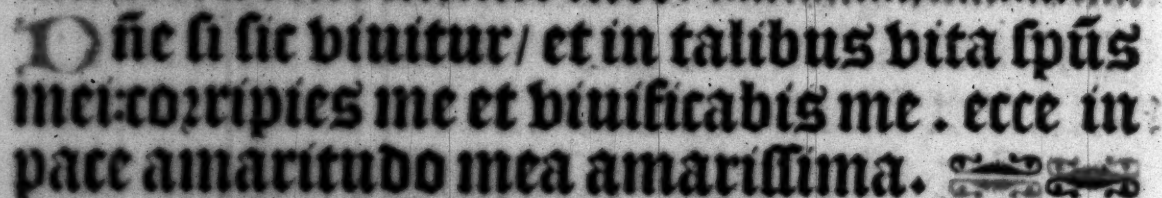 Dñe si sic viuitur/ et in talibus vita spũs
mei: corripies me et viuificabis me . ecce in
pace amaritudo mea amarissima.